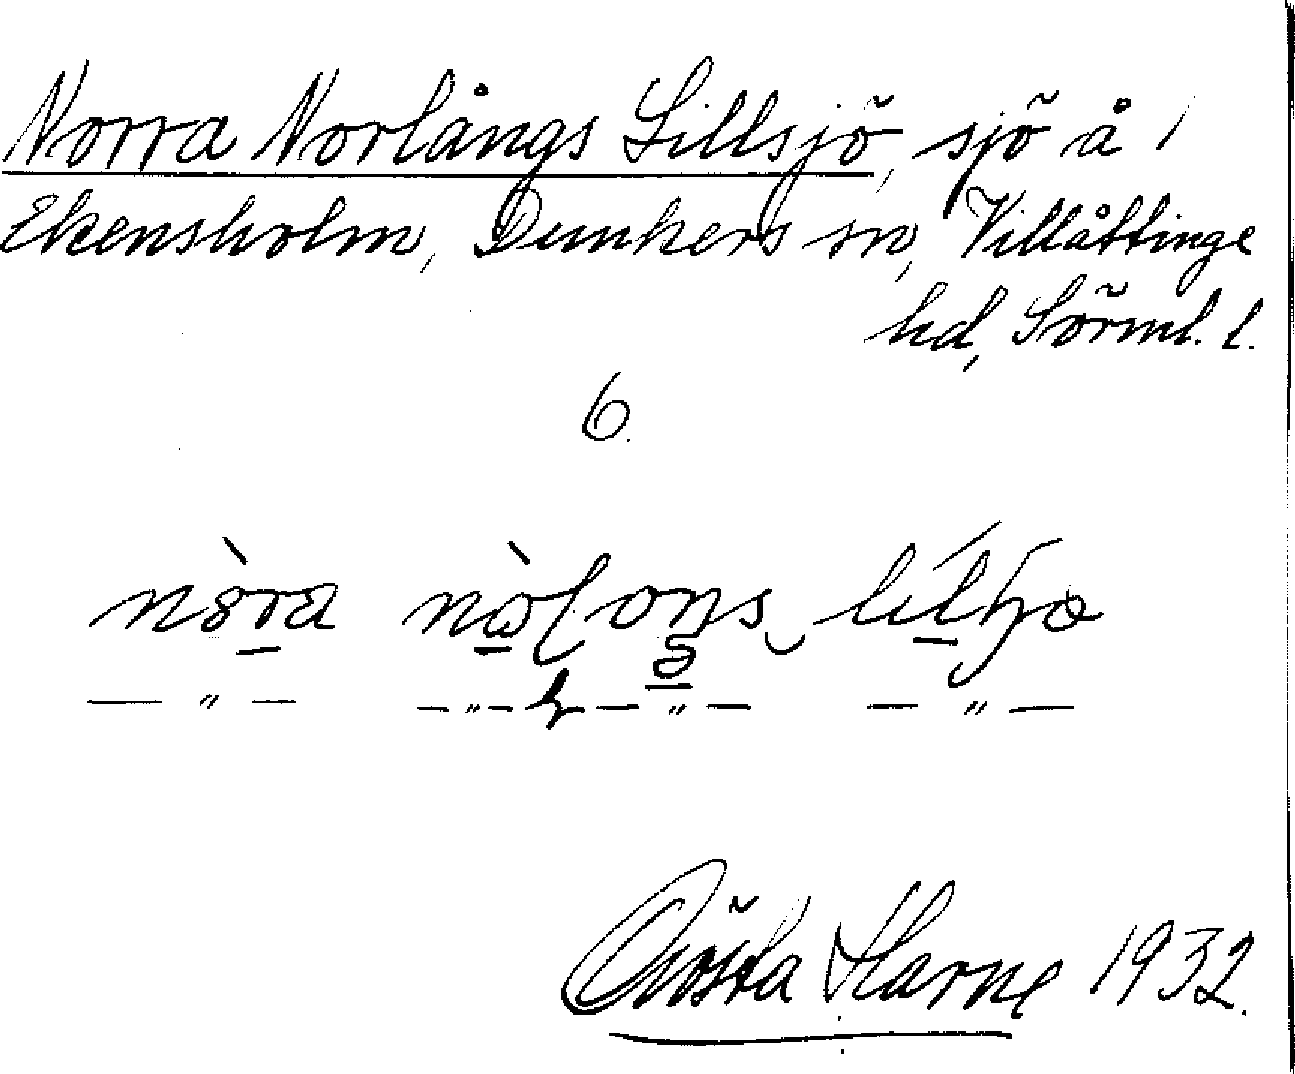 Norra Norlångs Lillsjö, sjö å /
Ekensholm, Dunkers sn, Villåttinge
hd, Sörml. l.
6.
Gösta Harne 1932.